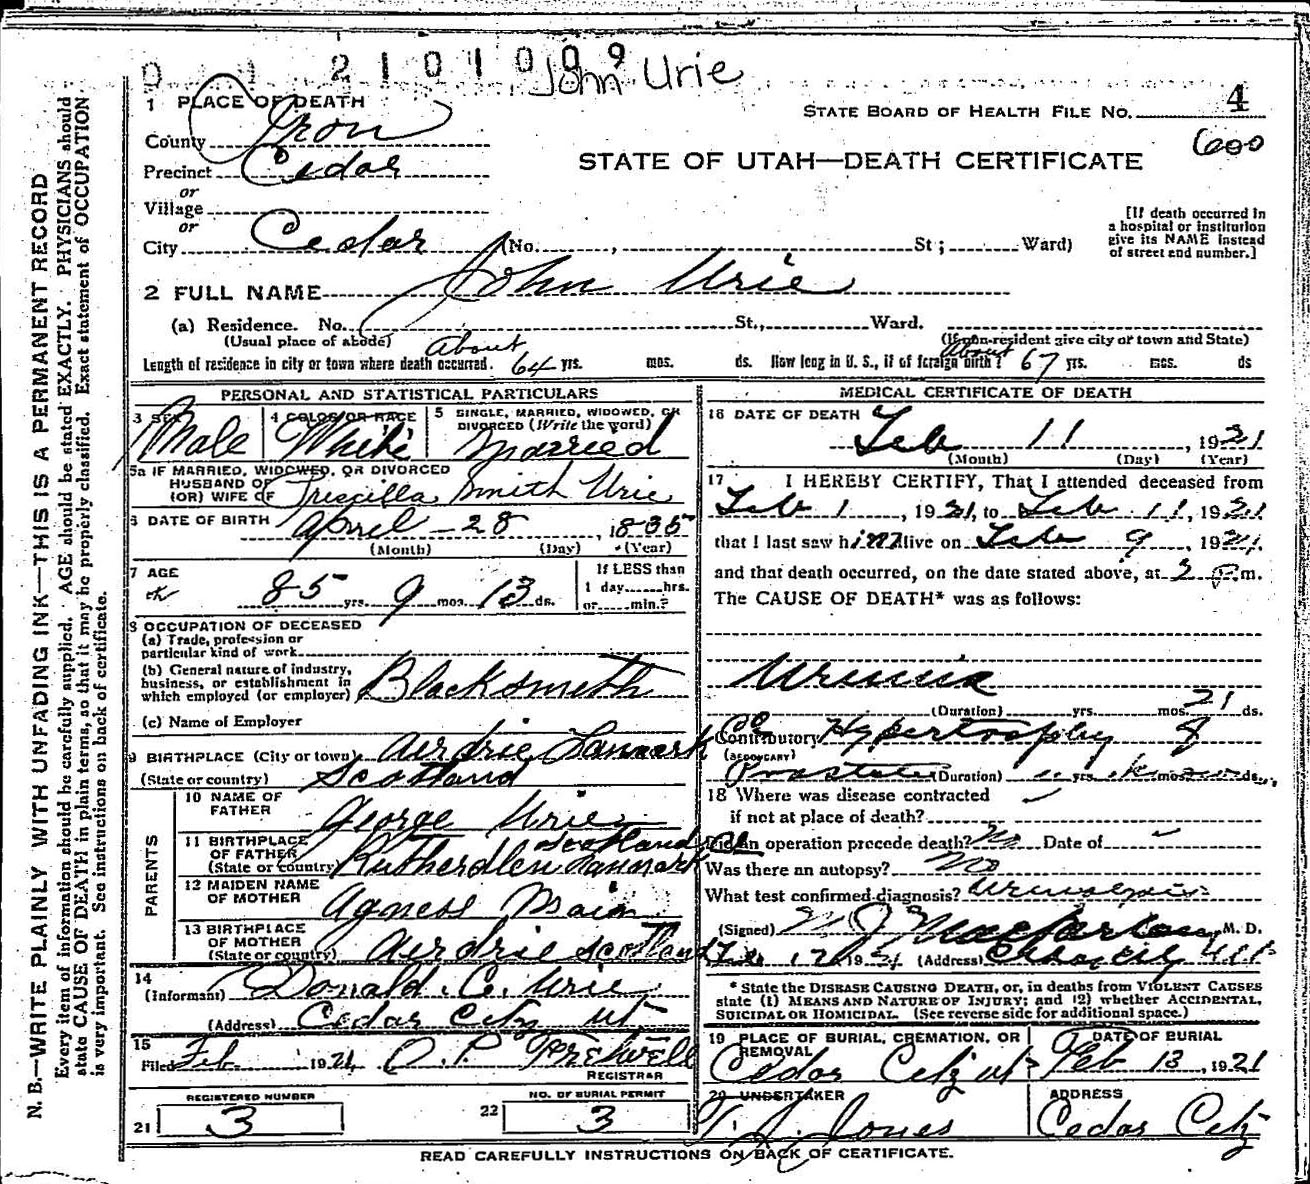 2101009 John Urie
1 PLACE OF DEATH
STATE BOARD OF HEALTH FILE NO. 4
County Iron
600
STATE OF UTAH—DEATH CERTIFICATE
Precinct Cedar
or
Village
or
City Cedar (No. , St; Ward)
[If death occurred in
a hospital or institution
give its NAME instead
of street and number.]
2 FULL NAME John Urie
(a) Residence. No. St., Ward.
(Usual place of abode) (If non-resident give city or town and State)
Length of residence in city or town where death occurred. About 64 yrs. mos. ds. How long in U. S., if of foreign birth? About 67 yrs. mos. ds
PERSONAL AND STATISTICAL PARTICULARS
3 SEX Male
4 COLOR OR RACE White
5 SINGLE, MARRIED, WIDOWED, OR
DIVORCED (Write the word)
Married
5a IF MARRIED, WIDOWED, OR DIVORCED
HUSBAND OF
(OR) WIFE OF Priscilla Smith Urie
6 DATE OF BIRTH April 28, 1835
(Month) (Day) (Year)
7 AGE
85 yrs. 9 mos. 13 ds.
If LESS than
1 day hrs.
or min.?
8 OCCUPATION OF DECEASED
(a) Trade, profession or
particular kind of work
(b) General nature of industry,
business, or establishment in
which employed (or employer) Blacksmith
(c) Name of Employer
9 BIRTHPLACE (City or town) Airdrie Lanark
(State or country) Scotland
PARENTS
10 NAME OF
FATHER George Urie
11 BIRTHPLACE
OF FATHER Scotland
(State or country) Rutherglen Lanmark
12 MAIDEN NAME
OF MOTHER Agness Main
13 BIRTHPLACE
OF MOTHER
(State or country) Airdrie Scotland
14
(Informant) Donald C. Urie
(Address) Cedar City Ut
15
Filed Feb. 1921 REGISTRAR
REGISTERED NUMBER
21 3
NO. OF BURIAL PERMIT
22 3
MEDICAL CERTIFICATE OF DEATH
16 DATE OF DEATH Feb 11, 1921
(Month) (Day) (Year)
17 I HEREBY CERTIFY, That I attended deceased from
Feb 1, 1921, to Feb 11, 1921
that I last saw him alive on Feb 9, 1921,
and that death occurred, on the date stated above, at 2 P.m.
The CAUSE OF DEATH* was as follows:
Uremia
(Duration) yrs. mos. 21 ds.
Contributory Hypertrophy of
(SECONDARY)
Prostate (Duration) yrs. mos. ds.
18 Where was disease contracted
if not at place of death?
Did an operation precede death? No Date of
Was there an autopsy? No
What test confirmed diagnosis? Urinalysis
(Signed) M J Macfarlane, M. D.
Feb 12 1921 (Address) Cedar City Ut
* State the DISEASE CAUSING DEATH, or, in deaths from VIOLENT CAUSES
state (1) MEANS AND NATURE OF INJURY; and (2) whether ACCIDENTAL,
SUICIDAL OR HOMICIDAL. (See reverse side for additional space.)
19 PLACE OF BURIAL, CREMATION, OR
REMOVAL
Cedar City Ut
DATE OF BURIAL
Feb 13, 1921
20 UNDERTAKER
T. J. Jones
ADDRESS
Cedar City
READ CAREFULLY INSTRUCTIONS ON BACK OF CERTIFICATE.
N. B.—WRITE PLAINLY WITH UNFADING INK—THIS IS A PERMANENT RECORD
Every item of information should be carefully supplied. AGE should be stated EXACTLY. PHYSICIANS should
state CAUSE OF DEATH in plain terms, so that it may be properly classified. Exact statement of OCCUPATION
is very important. See instructions on back of certificate.